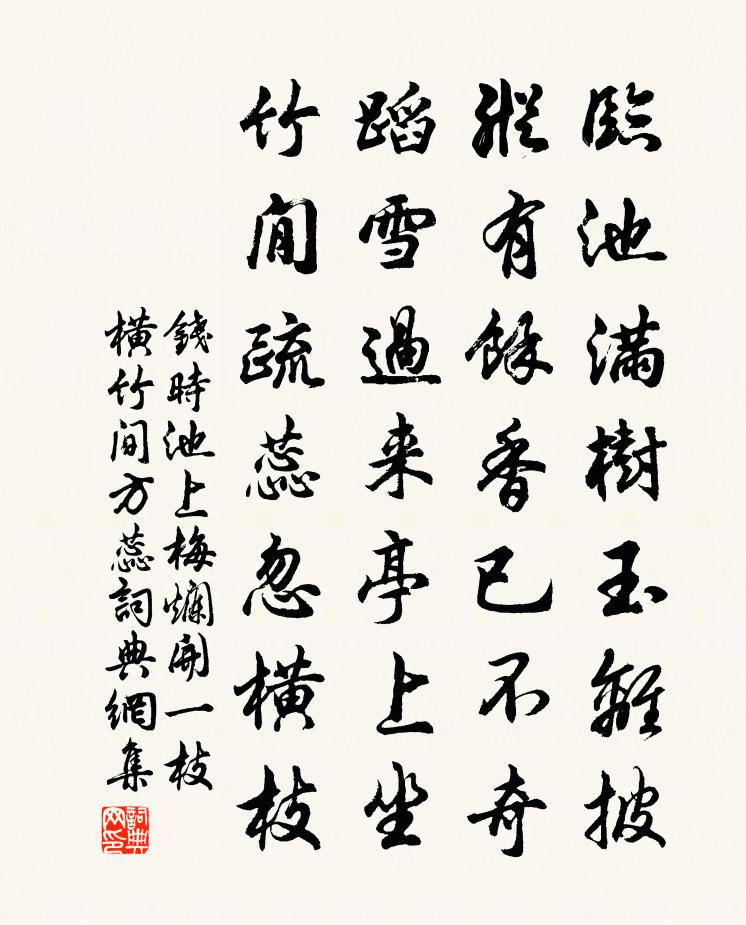 臨池滿樹玉離披
縱有餘香已不奇
蹈雪過来亭上坐
竹間疏蕊忽橫枝
錢時池上梅爛開一枝
橫竹間方蕊詞典網集
詞典
网印